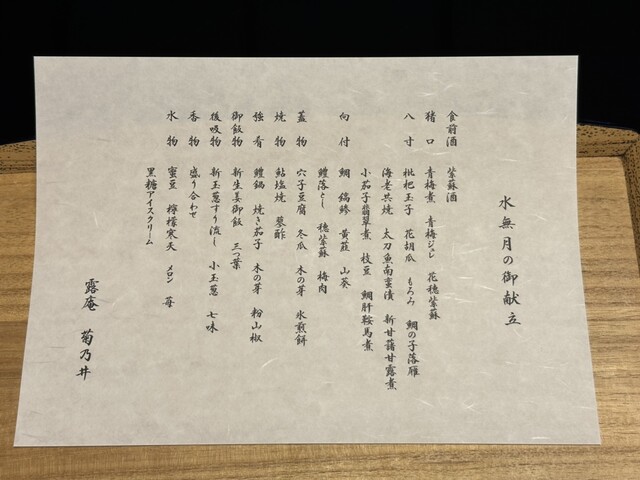 水無月の御献立
食前酒 紫蘇酒
猪口 青梅煮 青梅ジュレ 花穂紫蘇
八寸 枇杷玉子 花胡瓜 もろみ 鯛の子落雁
海老共焼 太刀魚南蛮漬 新甘藷甘露煮
小茄子翡翠煮 枝豆 鯛肝鞍馬煮
向付 鯛 縞鯵 黄韮 山葵
鱧落とし 穂紫蘇 梅肉
蓋物 穴子豆腐 冬瓜 木の芽 氷煎餅
焼物 鮎塩焼 蓼酢
強肴 鱧鍋 焼き茄子 木の芽 粉山椒
御飯物 新生姜御飯 三つ葉
後吸物 新玉葱すり流し 小玉葱 七味
香物 盛り合わせ
水物 蜜豆 檸檬寒天 メロン 苺
黒糖アイスクリーム
露庵 菊乃井